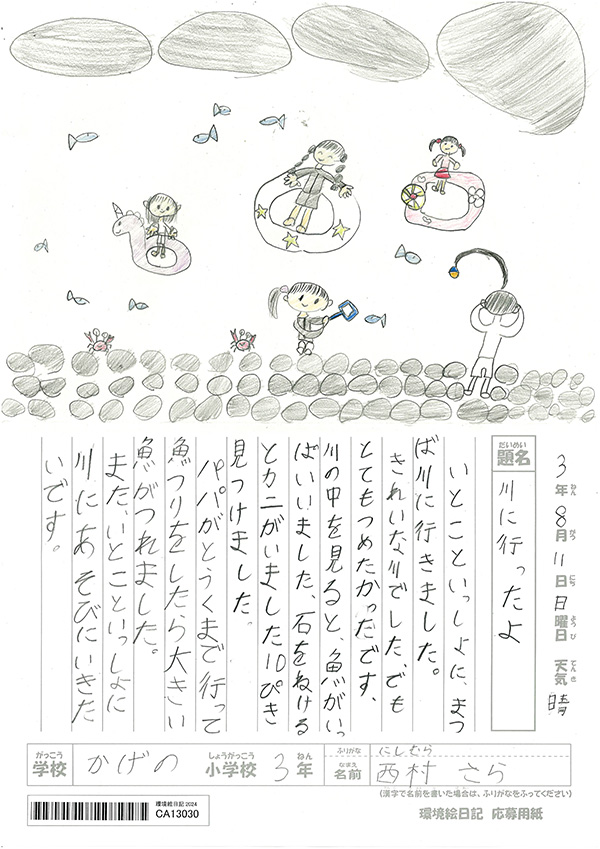 3年8月11日日曜日 天気 晴
ねん がつ にち ようび てんき
だいめい
題名
川に行ったよ
いとこといっしょに、まつ
ば川に行きました。
きれいな川でした、でも
とてもつめたかったです、
川の中を見ると、魚がいっ
ぱいいました、石をぬける
とカニがいました10ぴき
見つけました。
パパがとうくまで行って
魚つりをしたら大きい
魚がつれました。
また、いとこといっしょに
川にあそびにいきた
いです。
がっこう
学校
かげの
しょうがっこう
小学校
3年
ねん
ふりがな
にしむら
なまえ
名前
西村 さら
(漢字で名前を書いた場合は、ふりがなをふってください)
環境絵日記2024
CA13030
環境絵日記 応募用紙